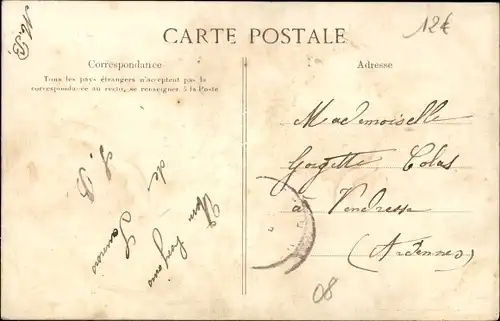 M. B.
12€
CARTE POSTALE
Correspondance
Tous les pays étrangers n'acceptent pas la
correspondance au recto, se renseigner à la Poste
Adresse
Mademoiselle
Gorgette Colas
à Vendresse
(Ardennes)
de
08